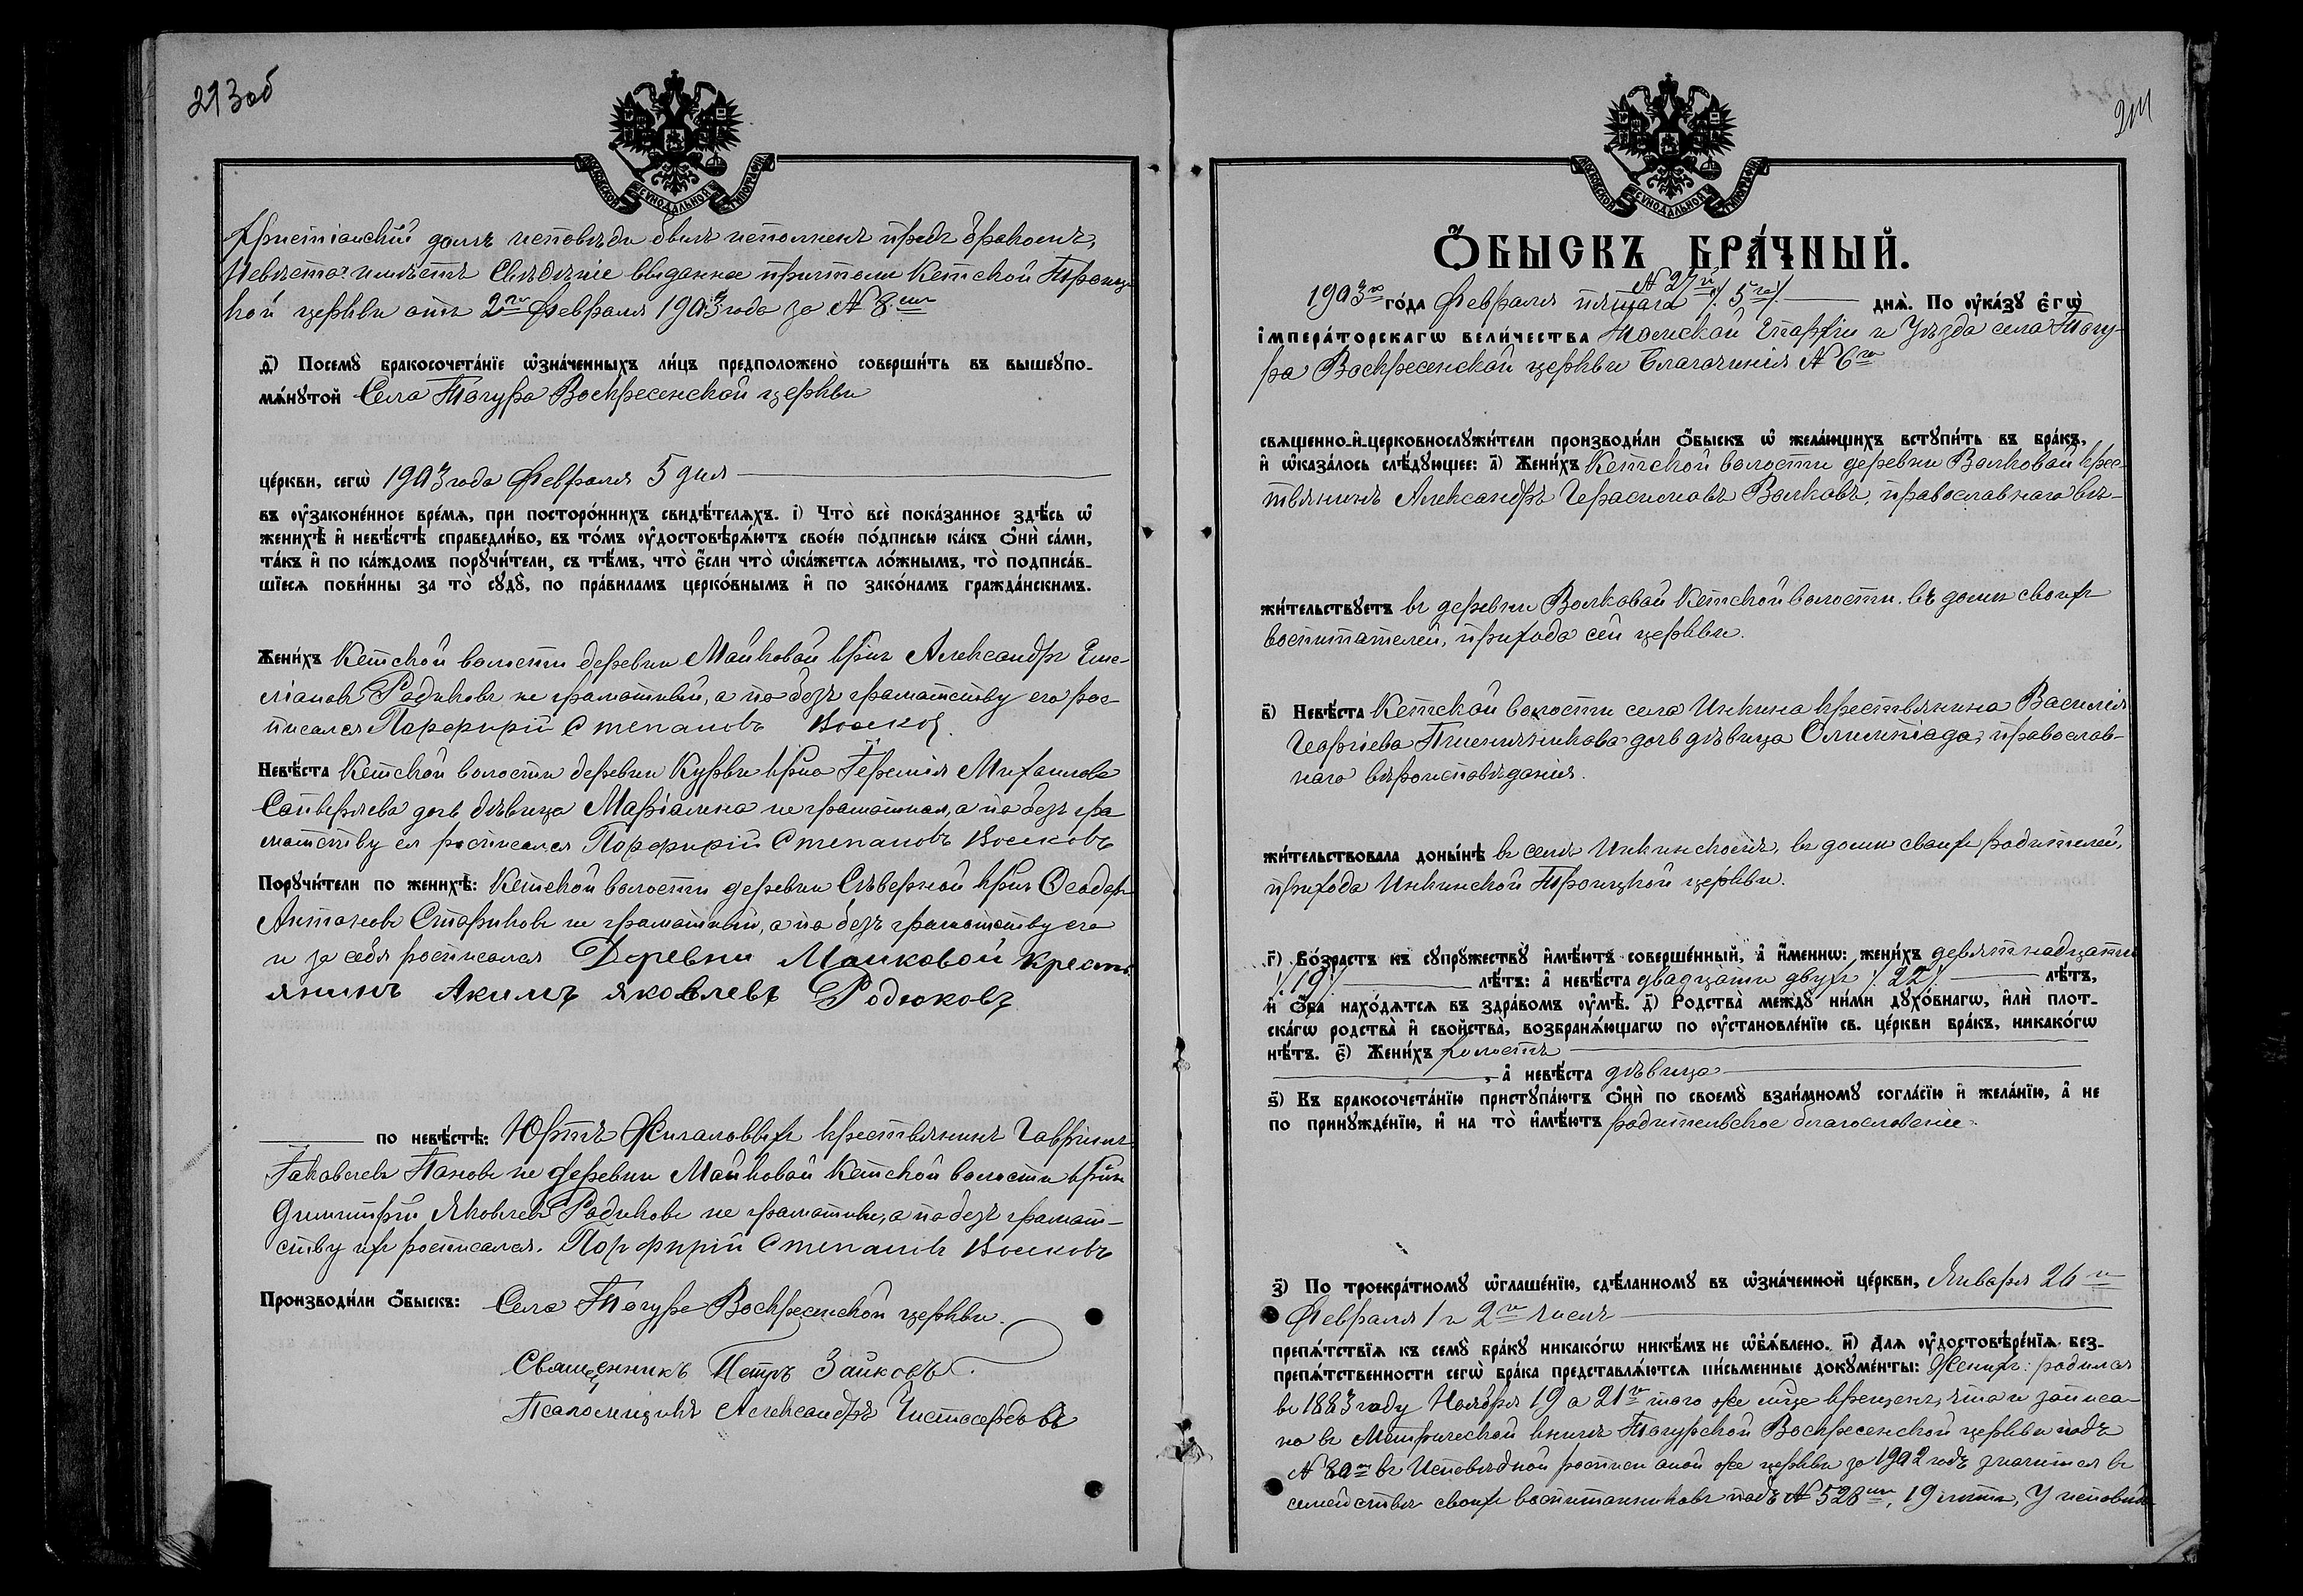 293об
МОСКОВСКОЙ СУНОДАЛЬНОЙ ТИПОГРАФІИ
Христіанскій долгъ исповѣди былъ исполненъ предъ бракомъ,
Невѣста имѣетъ Свѣдѣніе выданное притомъ Кетской Троиц-
кой церкви отъ 2го Февраля 1903 года за № 8мъ
д҃) Посемꙋ̀ бракосочета́нїе ѡ҆зна́ченныхъ ли́цъ предположено̀ соверши́ть въ вышеꙋпо-
мѧ́нꙋтой Села Тогура Воскресенской церкви
це́ркви, сегѡ̀ 1903 года Февраля 5 дня
въ ᲂу҆законе́нное вре́мѧ, при посторо́ннихъ свидѣ́телѧхъ. і҃) Что̀ всѐ пока́занное здѣ́сь ѡ҆
женихѣ̀ и҆ невѣ́стѣ справедли́во, въ то́мъ ᲂу҆достовѣрѧ́ютъ свое́ю по́дписью ка́къ ѻ҆нѝ са́ми,
та́къ и҆ по ка́ждомъ порꙋчи́тели, съ тѣ́мъ, что̀ є҆́сли что̀ ѡ҆ка́жетсѧ ло́жнымъ, то̀ подписа́в-
шїесѧ пови́нны за то̀ сꙋдꙋ̀, по пра́виламъ церко́внымъ и҆ по зако́намъ гражда́нскимъ.
Жени́хъ Кетской волости деревни Майковой кр͠нъ Александръ Еме-
ліановъ Родиковъ не грамотный, а по безъ грамотству его рос-
писался Порфирій Степановъ Волков
Невѣ́ста Кетской волости деревни Курьи кр͠на Іеремія Михаилова
дочь дѣвица Маріамна не грамотная, а по безъ гра-
мотству ея росписался Порфирій Степановъ Волковъ
Порꙋчи́тели по женихѣ̀: Кетской волости деревни Сѣверной кр͠нъ Ѳеодоръ
Антоновъ Стариковъ не грамотный, а по безъ грамотству его
и за себя росписался Деревни Майковой крестъ
янинъ Акимъ Яковлевъ Родюковъ
по невѣ́стѣ: Юртъ Жигаловыхъ крестьянинъ Гавріилъ
Іаковлевъ Пановъ не деревни Майковой Кетской волости кр͠нъ
Димитрій Яковлевъ Родиковъ не грамотны, а по безъ грамот-
ству ихъ росписался. Порфирій Степановъ Волковъ
Производи́ли ѻ҆́быскъ: Села Тогура Воскресенской церкви.
Священникъ Петръ Зайковъ.
Псаломщикъ Александръ Чистосердовъ
294
МОСКОВСКОЙ СУНОДАЛЬНОЙ ТИПОГРАФІИ
Ѻ҆́БЫСКЪ БРА́ЧНЫЙ.
№ 27й
1903го го́да Февраля пятаго /5го/ днѧ̀. По ᲂу҆ка́зꙋ є҆гѡ̀
і҆мпера́торскагѡ вели́чества Томской Епархіи и Уѣзда села Тогу-
ра Воскресенской церкви Благочинія № 6го
свѧще́нно-и҆-церковнослꙋжи́тели производи́ли ѻ҆́быскъ ѡ҆ жела́ющихъ встꙋпи́ть въ бра́къ,
и҆ ѡ҆каза́лось слѣ́дꙋющее: а҃) Жени́хъ Кетской волости деревни Волковой крес-
тьянинъ Александръ Герасимовъ Волковъ, православнаго вѣ-
жи́тельствꙋетъ въ деревни Волковой Кетской волости. въ доми своихъ
воспитателей, прихода сей церкви.
в҃) Невѣ́ста Кетской волости села Инкина крестьянина Василія
Георгіева Пшеничникова дочь дѣвица Олимпіада, православ-
наго вѣроисповѣданія.
жи́тельствовала доны́нѣ въ селѣ Инкинскомъ, въ доми своихъ родителей,
прихода Инкинской Троицкой церкви.
г҃) Во́зрастъ къ сꙋпрꙋ́жествꙋ и҆мѣ́ютъ соверше́нный, а҆ и҆́меннѡ: жени́хъ девятнадцати
/19/ лѣ́тъ: а҆ невѣ́ста двадцати двухъ /22/ лѣ́тъ,
и҆ ѻ҆́ба нахо́дѧтсѧ въ здра́вомъ ᲂу҆мѣ̀. д҃) Родства̀ междꙋ̀ ни́ми дꙋхо́внагѡ, и҆лѝ плот-
ска́гѡ родства̀ и҆ сво́йства̀, возбранѧ́ющагѡ по ᲂу҆становле́нїю св. це́ркви бра́къ, никако́гѡ
нѣ́тъ. є҃) Жени́хъ холостъ
, а҆ невѣ́ста дѣвица
ѕ҃) Къ бракосочета́нїю пристꙋпа́ютъ ѻ҆нѝ по своемꙋ̀ взаи́мномꙋ согла́сїю и҆ жела́нїю, а҆ не
по принꙋжде́нїю, и҆ на то̀ и҆мѣ́ютъ родительское благословеніе.
з҃) По троекра́тномꙋ ѡ҆глаше́нїю, сдѣ́ланномꙋ въ ѡ҆зна́ченной це́ркви, Января 26го
Февраля 1 и 2го числъ
препѧ́тствїѧ къ семꙋ̀ бра́кꙋ никако́гѡ никѣ́мъ не ѡ҆б̾ѧ́влено. и҃) Длѧ ᲂу҆достовѣре́нїѧ без-
препѧ́тственности сегѡ̀ бра́ка представлѧ́ютсѧ пи́сьменные докꙋме́нты: Женихъ: родился
въ 1883 году Ноября 19 а 21го того же мѣсяца крещенъ, что и записа-
но въ Метрической книгѣ Тогурской Воскресенской церкви подъ
№ 80м въ Исповѣдной росписи оной же церкви за 1902 годъ значится въ
семействѣ своихъ воспитанниковъ подъ № 528мъ, 19 лѣтъ, У исповѣди